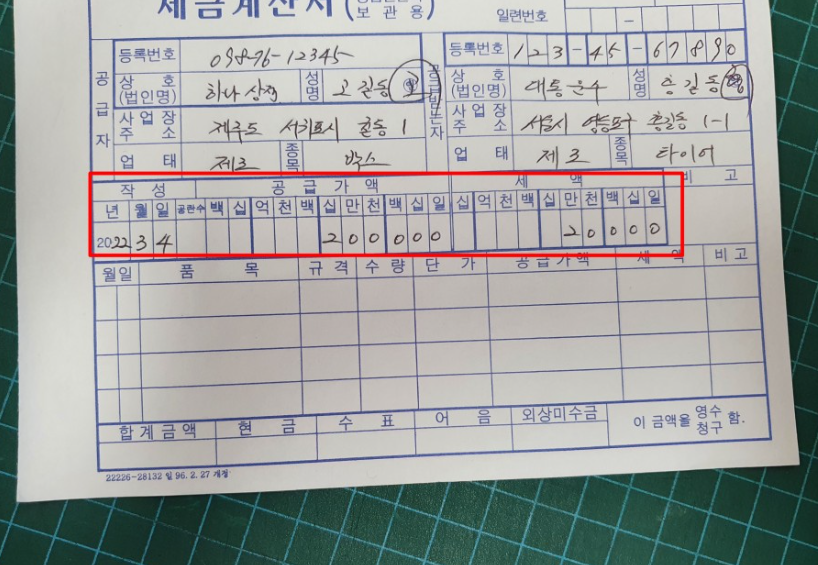 세금계산서
보 관 용)
일련번호
공급자
등록번호 098-76-12345
상 호 (법인명) 하나 상점 성명 고길동
사업장 주 소 제주도 서귀포시 길동 1
업 태 제조 종목 박스
공급받는자
등록번호 123-45-67890
상 호 (법인명) 대통운수 성명 홍길동
사업장 주 소 서울시 영등포구 홍길동 1-1
업 태 제조 종목 타이어
작 성 공 급 가 액 세 액 비 고
년 월 일 공란수 백 십 억 천 백 십 만 천 백 십 일 십 억 천 백 십 만 천 백 십 일
2022 3 4 2 0 0 0 0 0 2 0 0 0 0
월일 품 목 규 격 수 량 단 가 공 급 가 액 세 액 비 고
합 계 금 액 현 금 수 표 어 음 외상미수금 이 금액을 영수 청구 함.
22226-28132 일 96. 2. 27 개정